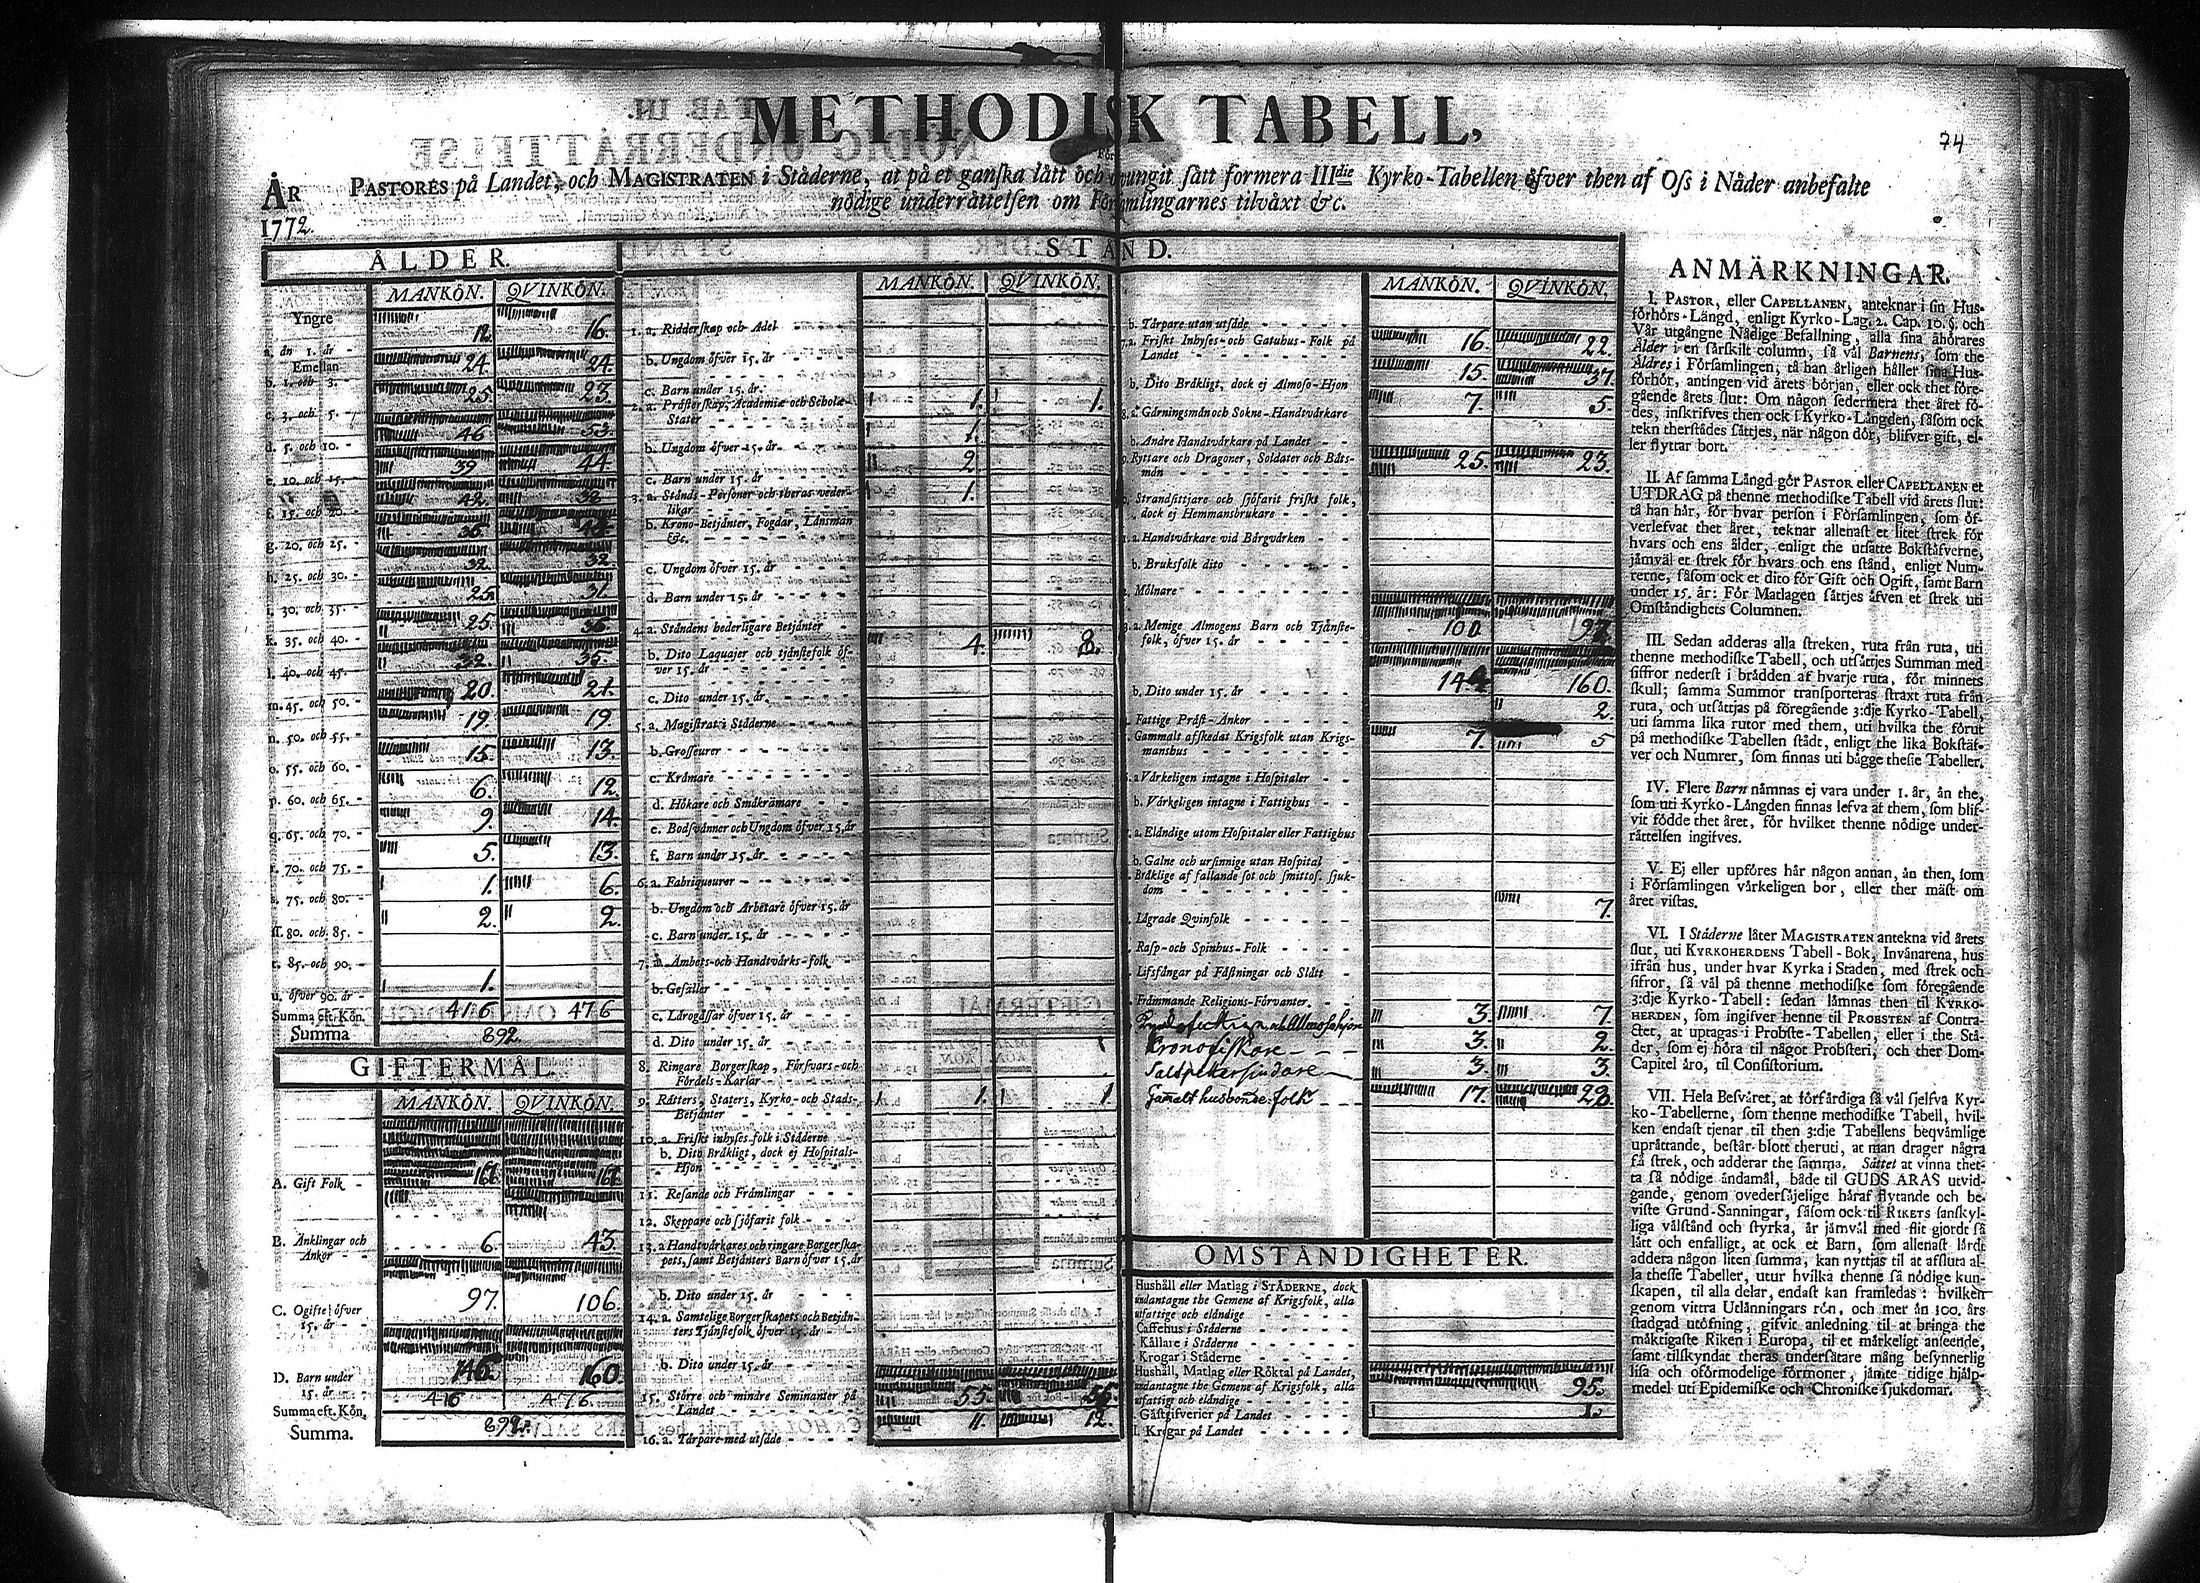 METHODISK TABELL,
74
För
ÅR PASTORES på Landet, och MAGISTRATEN i Ståderne, at på et ganska lått och otvungit sått formera IIIdie Kyrko-Tabellen öfver then af Oss i Nåder anbefalte
1772. nödige underråttelsen om Församlingarnes tilvåxt &c.
ÅLDER.
MANKÖN. QVINKÖN.
Yngre
a. ån 1. år - 12. 16.
Emellan
b. 1. och 3. - 24. 24.
c. 3. och 5. - 25. 23.
d. 5. och 10. - 46 53.
e. 10. och 15. - 39 44.
f. 15. och 20. - 42. 32
g. 20. och 25. 36. 44
h. 25. och 30. - 32. 32
i. 30. och 35. - 25. 31.
k. 35. och 40. - 25. 36.
l. 40. och 45. - 32. 35.
m. 45. och 50. - 20. 21.
n. 50. och 55. - 19. 19.
o. 55. och 60. - 15. 13.
p. 60. och 65. - 6. 12.
q. 65. och 70. - 9. 14.
r. 70. och 75. - 5. 13.
s. 75. och 80. - 1. 6.
ſſ. 80. och 85. - 2. 2.
t. 85. och 90. -
u. öfver 90. år - 1.
Summa eft. Kön. 416 476
Summa 892.
GIFTERMÅL.
MANKÖN. QVINKÖN.
A. Gift Folk - 167. 167.
B. Änklingar och Ånkor - - 6. 43.
C. Ogifte öfver 15. år - - 97. 106.
D. Barn under 15. år - - 146. 160.
Summa eft. Kön. 416 476.
Summa. 892.
STÅND.
MANKÖN. QVINKÖN.
1. a. Ridderskap och Adel
b. Ungdom öfver 15. år
c. Barn under 15. år.
2. a. Pråsterskap, Academiæ och Scholæ-Stater 1. 1.
b. Ungdom öfver 15. år 1.
c. Barn under 15. år 2.
3. a. Stånds-Personer och theras vederlikar 1.
b. Krono-Betjånter, Fogdar, Lånsmån &c.
c. Ungdom öfver 15. år
d. Barn under 15. år
4. a. Ståndens hederligare Betjånter
b. Dito Laquajer och tjånstefolk öfver 15. år 4. 8.
c. Dito under 15. år
5. a. Magistrat i Ståderne
b. Grosseurer
c. Kråmare
d. Hökare och Småkråmare
e. Bodsvånner och Ungdom öfver 15. år
f. Barn under 15. år
6. a. Fabriqueurer
b. Ungdom och Arbetare öfver 15. år
c. Barn under 15. år
7. a. Ambets-och Handtvårks-folk
b. Gesåller
c. Lårogåssar öfver 15. år
d. Dito under 15. år
8. Ringare Borgerskap, Försvars-och Fördels-Karlar
9. Råtters, Staters, Kyrko-och Stads-Betjånter 1. 1
10. a. Friskt inhyses folk i Ståderne
b. Dito Bråkligt, dock ej Hospitals-Hjon
11. Resande och Fråmlingar
12. Skeppare och sjöfarit folk
13. a Handtvårkares och ringare Borgerskapets, samt Betjånters Barn öfver 15. år
b. Dito under 15. år
14. a. Samtelige Borgerskapets och Betjånters Tjånstefolk öfver 15. år
b. Dito under 15. år
15. Större och mindre Seminanter på Landet 55. 56.
16. a. Tårpare med utsåde 11. 12.
MANKÖN. QVINKÖN.
b. Tårpare utan utsåde 16. 22.
17. a. Friskt Inhyses-och Gatuhus-Folk på Landet 15. 37.
b. Dito Bråkligt, dock ej Almoso-Hjon 7. 5.
18. a. Gårningsmån och Sokne-Handtvårkare
b. Andre Handtvårkare på Landet 25. 23.
Ryttare och Dragoner, Soldater och Båtsmån
Strandsittjare och sjöfarit friskt folk, dock ej Hemmansbrukare
a. Handtvårkare vid Bårgvårken
b. Bruksfolk dito
Mölnare
a. Menige Almogens Barn och Tjånstefolk, öfver 15. år 100 97.
b. Dito under 15. år 144. 160.
Fattige Pråst-Ånkor 2.
Gammalt afskedat Krigsfolk utan Krigsmanshus 7. 5
a Vårkeligen intagne i Hospitaler
b. Vårkeligen intagne i Fattighus
a. Elåndige utom Hospitaler eller Fattighus
b. Galne och ursinnige utan Hospital
Bråklige af fallande sot och smittos. sjukdom
Lågrade Qvinfolk 7.
Rasp-och Spinhus-Folk
Lifsfångar på Fåstningar och Slått
Fråmmande Religions-Förvanter
och Allmosehjon 3. 7.
Kronofiskare - - - 3. 2.
Saltpetersiudare 3. 3.
Gamalt husbonde-folk 17. 22.
OMSTÅNDIGHETER.
Hushåll eller Matlag i STÅDERNE, dock undantagne the Gemene af Krigsfolk, alla utfattige och elåndige
Caffehus i Ståderne
Kållare i Ståderne
Krogar i Ståderne
Hushåll, Matlag eller Röktal på Landet, undantagne the Gemene af Krigsfolk, alla utfattige och elåndige 95.
Gåstgifverier på Landet 1.
Krogar på Landet
ANMÅRKNINGAR.
I. PASTOR, eller CAPELLANEN, anteknar i sin Hus-
förhörs-Långd, enligt Kyrko-Lag. 2. Cap. 10. §. och
Vår utgångne Nådige Befallning, alla sina åhörares
Ålder i en sårskilt column, så vål Barnens, som the
Åldres i Församlingen, tå han årligen håller sina Hus-
förhör, antingen vid årets början, eller ock thet före-
gående årets slut: Om någon sedermera thet året fö-
des, inskrifves then ock i Kyrko-Långden, såsom ock
tekn therstådes såttjes, når någon dör, blifver gift, el-
ler flyttar bort.
II. Af samma Långd gör PASTOR eller CAPELLANEN et
UTDRAG på thenne methodiske Tabell vid årets slut:
tå han hår, för hvar person i Församlingen, som öf-
verlefvat thet året, teknar allenast et litet strek för
hvars och ens ålder, enligt the utsatte Bokståfverne,
jåmvål et strek för hvars och ens stånd, enligt Num-
rerne, såsom ock et dito för Gift och Ogift, samt Barn
under 15. år: För Matlagen såttjes åfven et strek uti
Omståndighets Columnen.
III. Sedan adderas alla streken, ruta från ruta, uti
thenne methodiske Tabell, och utsåttjes Summan med
siffror nederst i brådden af hvarje ruta, för minnets
skull; samma Summor transporteras straxt ruta från
ruta, och utsåttjas på föregående 3:dje Kyrko-Tabell,
uti samma lika rutor med them, uti hvilka the förut
på methodiske Tabellen stådt, enligt the lika Bokståf-
ver och Numrer, som finnas uti bågge thesse Tabeller.
IV. Flere Barn nåmnas ej vara under 1. år, ån the,
som uti Kyrko-Långden finnas lefva af them, som blif-
vit födde thet året, för hvilket thenne nödige under-
råttelsen ingifves.
V. Ej eller upföres hår någon annan, ån then, som
i Församlingen vårkeligen bor, eller ther måst om
året vistas.
VI. I Ståderne låter MAGISTRATEN antekna vid årets
slut, uti KYRKOHERDENS Tabell-Bok, Invånarena, hus
ifrån hus, under hvar Kyrka i Staden, med strek och
sifror, så vål på thenne methodiske som föregående
3:dje Kyrko-Tabell: sedan låmnas then til KYRKO-
HERDEN, som ingifver henne til PROBSTEN af Contra-
ctet, at uptagas i Probste-Tabellen, eller i the Stå-
der, som ej höra til något Probsteri, och ther Dom-
Capitel åro, til Consistorium.
VII. Hela Besvåret, at förfårdiga så vål sjelfva Kyr-
ko-Tabellerne, som thenne methodiske Tabell, hvil-
ken endast tjenar til then 3:dje Tabellens beqvåmlige
upråttande, består blott theruti, at man drager några
få strek, och adderar the samma. Såttet at vinna thet-
ta så nödige åndamål, både til GUDS ÅRAS utvid-
gande, genom ovedersåjelige håraf flytande och be-
viste Grund-Sanningar, såsom ock til RIKETS sanskyl-
liga vålstånd och styrka, år jåmvål med flit gjordt så
lått och enfalligt, at ock et Barn, som allenast lårdt
addera någon liten summa, kan nyttjas til at afsluta al-
la thesse Tabeller, utur hvilka thenne så nödige kun-
skapen, til alla delar, endast kan framledas: hvilken
genom vittra Utlånningars rön, och mer ån 100. års
stadgad utöfning, gifvit anledning til at bringa the
måktigaste Riken i Europa, til et mårkeligt anseende,
samt tilskyndat theras undersåtare mång besynnerlig
lisa och oförmodelige förmoner, jåmte tidige hjålp-
medel uti Epidemiske och Chroniske sjukdomar.